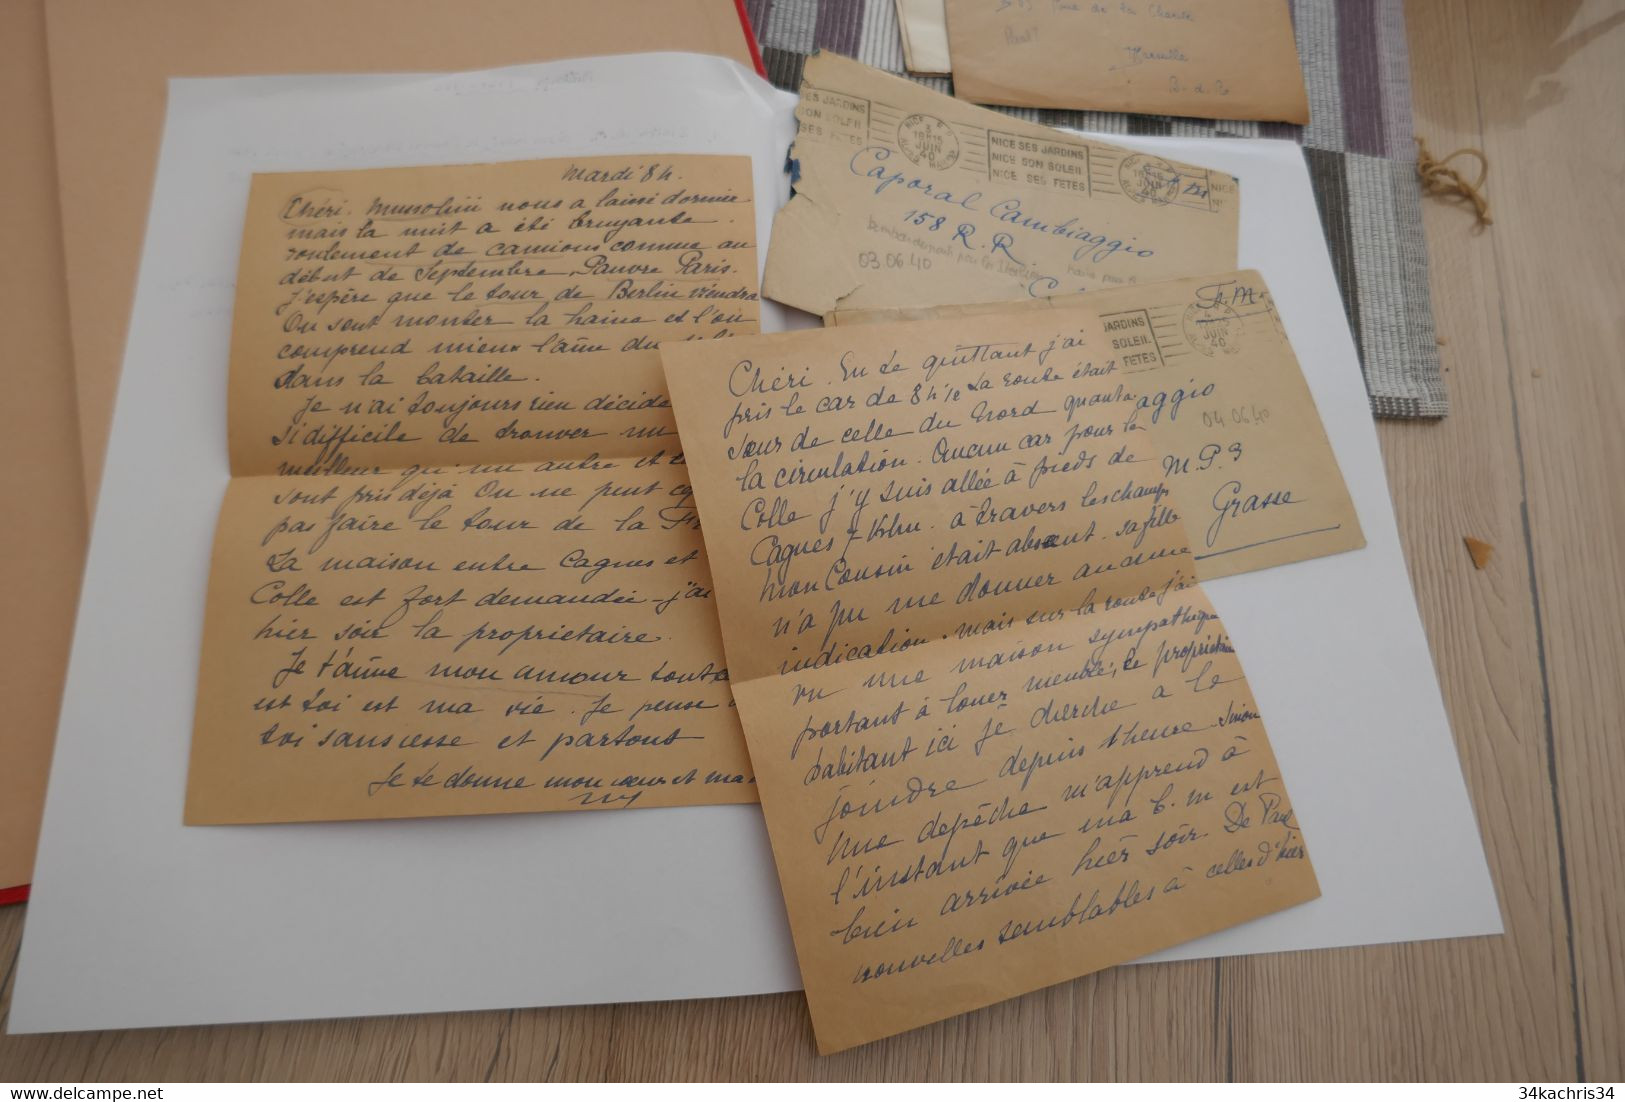 Mardi 8h.
Chéri. Mussolini nous a laissé dormir
mais la nuit a été bruyante.
roulement de camions comme au
début de Septembre. Pauvre Paris.
J'espère que le tour de Berlin viendra
On sent monter la haine et l'on
comprend mieux l'âme du
dans la bataille.
Je n'ai toujours rien décidé
si difficile de trouver un
meilleur qu'un autre et
sont pris déjà On ne peut
pas faire le tour de la
La maison entre Cagnes et
Colle est fort demandée - j'ai
hier soir la propriétaire.
Je t'aime mon amour tout
est toi est ma vie. Je pense
toi sans cesse et partout
Je te donne mon cœur et ma
Chéri. En te quittant j'ai
pris le car de 8h 1/2 La route était
sœur de celle du Nord quant à
la circulation. Aucun car pour la
Colle j'y suis allée à pieds de
Cagnes 7 Klm. à travers les champs
Mon Cousin était absent. sa fille
n'a pu me donner aucune
indication. mais sur la route j'ai
vu une maison sympathique
portant à louer meublé, le propriétaire
habitant ici je cherche à le
joindre depuis 1 heure. Sinon
Une depêche m'apprend à
l'instant que ma b. m est
bien arrivée hier soir. De Paul
nouvelles semblables à celles d'hier
SES JARDINS
SON SOLEIL
SES FÊTES
NICE R.P.
3
18H15
JUIN
40
NICE SES JARDINS
NICE SON SOLEIL
NICE SES FÊTES
NICE
Caporal Cambiaggio
158 R.R
03.06.40
F.M.
JARDINS
SOLEIL
FETES
JUIN
40
aggio
04.06.40
M.P.3
Grasse
Rue de la
Marseille
B.d.R
34kachris34
34kachris34